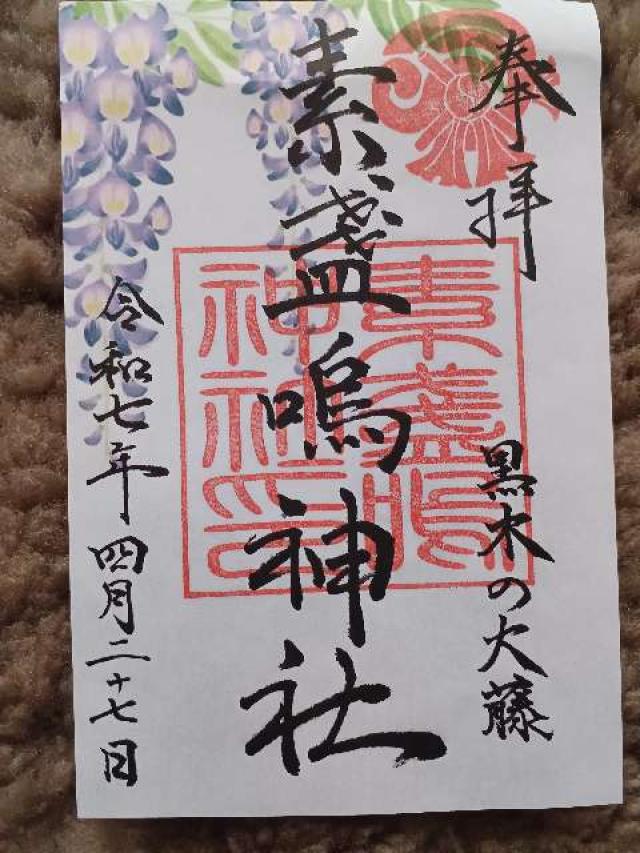 奉拝
黒木の大藤
素盞嗚神社
令和七年四月二十七日
素盞嗚
神社
神社之印